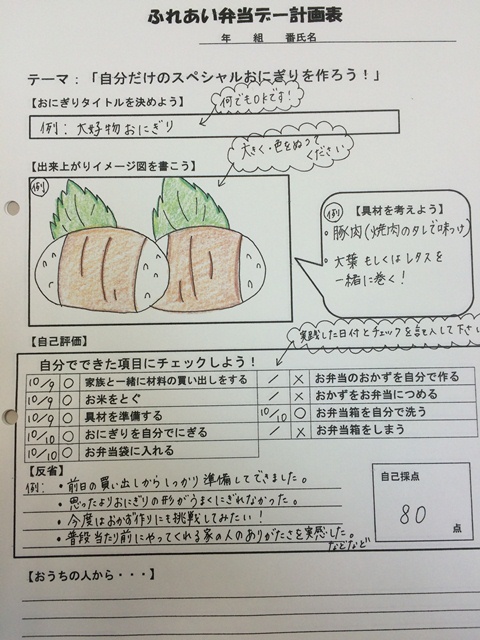 ふれあい弁当デー計画表
年 組 番氏名
テーマ:「自分だけのスペシャルおにぎりを作ろう!」
【おにぎりタイトルを決めよう】
何でもOKです!
例:大好物おにぎり
【出来上がりイメージ図を書こう】
大きく・色をぬって
ください
例
例 【具材を考えよう】
・豚肉(焼肉のタレで味つけ)
・大葉もしくはレタスを
一緒に巻く!
【自己評価】
実践した日付とチェックを記入して下さい
自分でできた項目にチェックしよう!
10/9 ○ 家族と一緒に材料の買い出しをする / × お弁当のおかずを自分で作る
10/9 ○ お米をとぐ / × おかずをお弁当につめる
10/9 ○ 具材を準備する 10/10 ○ お弁当箱を自分で洗う
10/10 ○ おにぎりを自分でにぎる / × お弁当箱をしまう
10/10 ○ お弁当袋に入れる
【反省】
例:・前日の買い出しからしっかり準備してできました。
・思ったよりおにぎりの形がうまくにぎれなかった。
・今度はおかず作りにも挑戦してみたい!
・普段当たり前にやってくれる家の人のありがたさを実感した。
などなど
自己採点
80
点
【おうちの人から・・・】